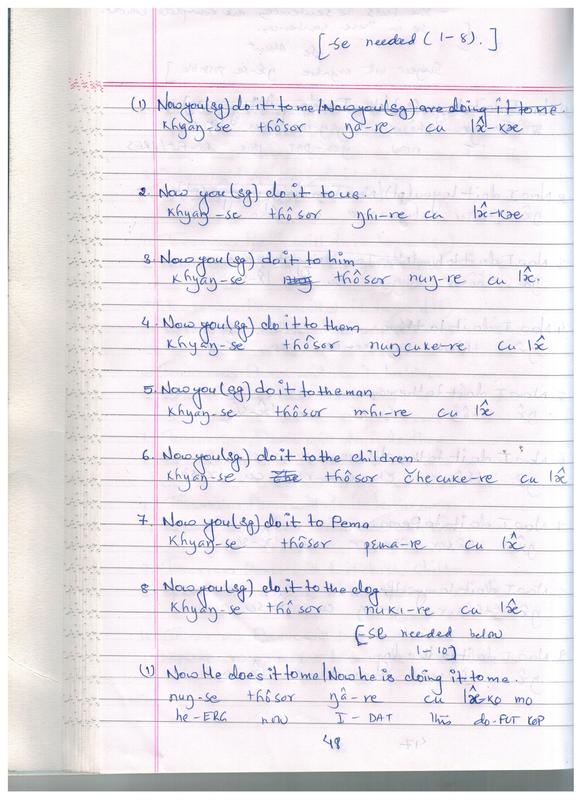 [-se needed (1-8).]
(1) Now you(sg) do it to me/Now you(sg) are doing it to me.
Khyaŋ-se thôsor ŋâ-re cu lâ̵-kæ
2. Now you(sg) do it to us.
Khyaŋ-se thôsor ŋhi-re cu læ̂-kæ
3. Now you(sg) do it to him
Khyaŋ-se thôsor nuŋ-re cu læ̂.
4. Now you(sg) do it to them
Khyaŋ-se thôsor nuŋcuke-re cu læ̂
5. Now you(sg) do it to the man
Khyaŋ-se thôsor mhi-re cu læ̂
6. Now you(sg) do it to the children.
Khyaŋ-se thôsor čhecuke-re cu læ̂
7. Now you(sg) do it to Pema
Khyaŋ-se thôsor pema-re cu læ̂
8. Now you(sg) do it to the dog.
Khyaŋ-se thôsor nuki-re cu læ̂
[-se needed below
1-10]
(1) Now He does it to me/Now he is doing it to me.
nuŋ-se thôsor ŋâ-re cu læ̂-ko mo
he-ERG now I-DAT this do-FUT COP
48